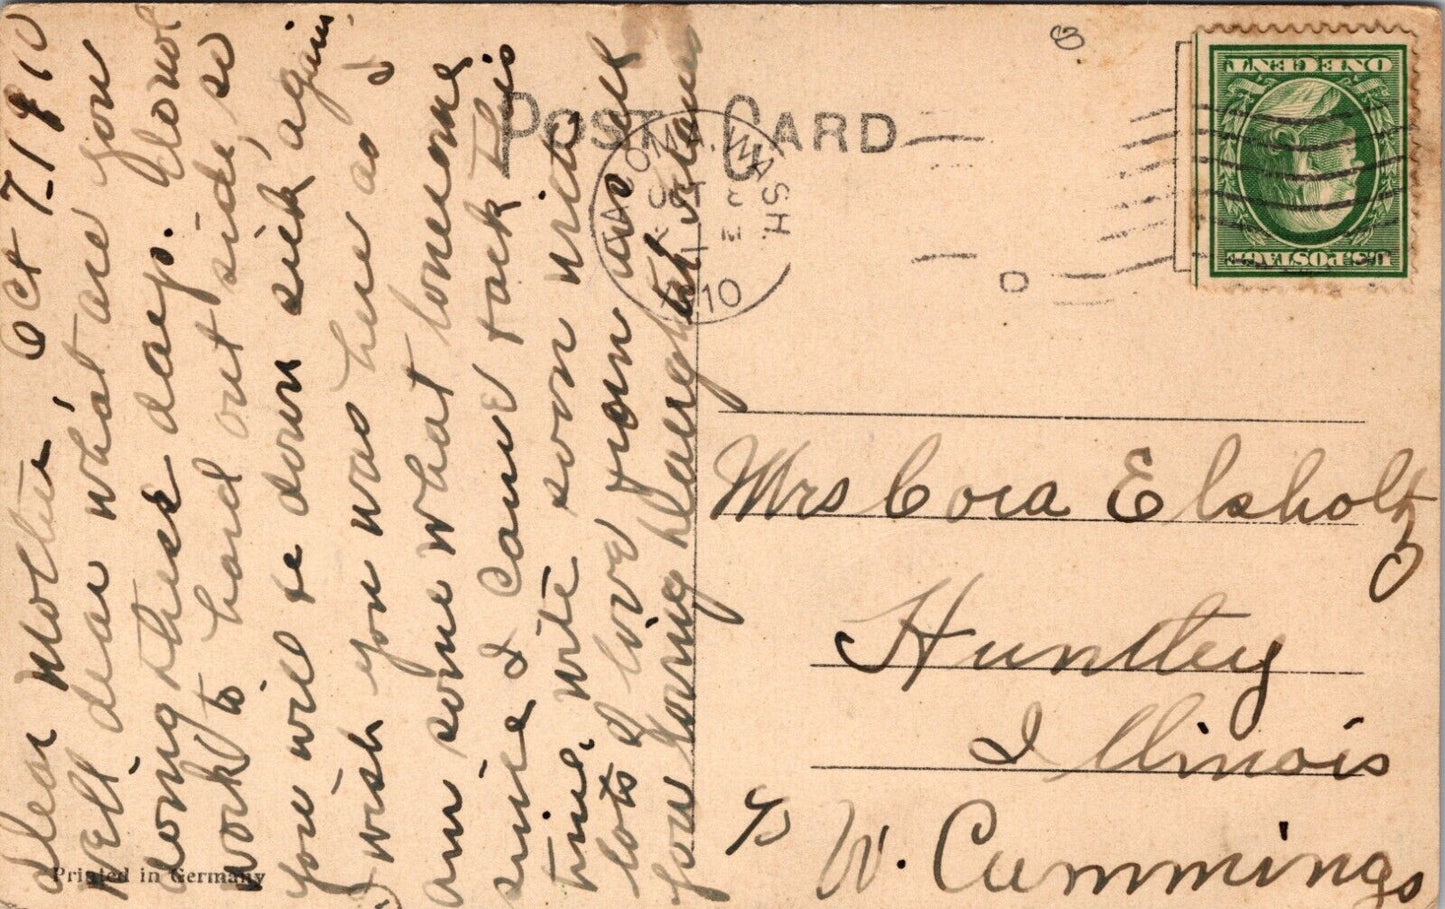 Oct 7 1910
Dear Mother,
Well dear what are you
doing these days. Donot
work to hard out side, so
you will be down sick again.
I wish you was here as I
am some what lonesome
since I came back this
time. Write soon and
lots I love you well
your loving daughter
POST CARD
TACOMA, WASH.
OCT
1910
U.S. POSTAGE
ONE CENT
Mrs Cora Elsholtz
Huntley
Illinois
c/o W. Cummings
Printed in Germany